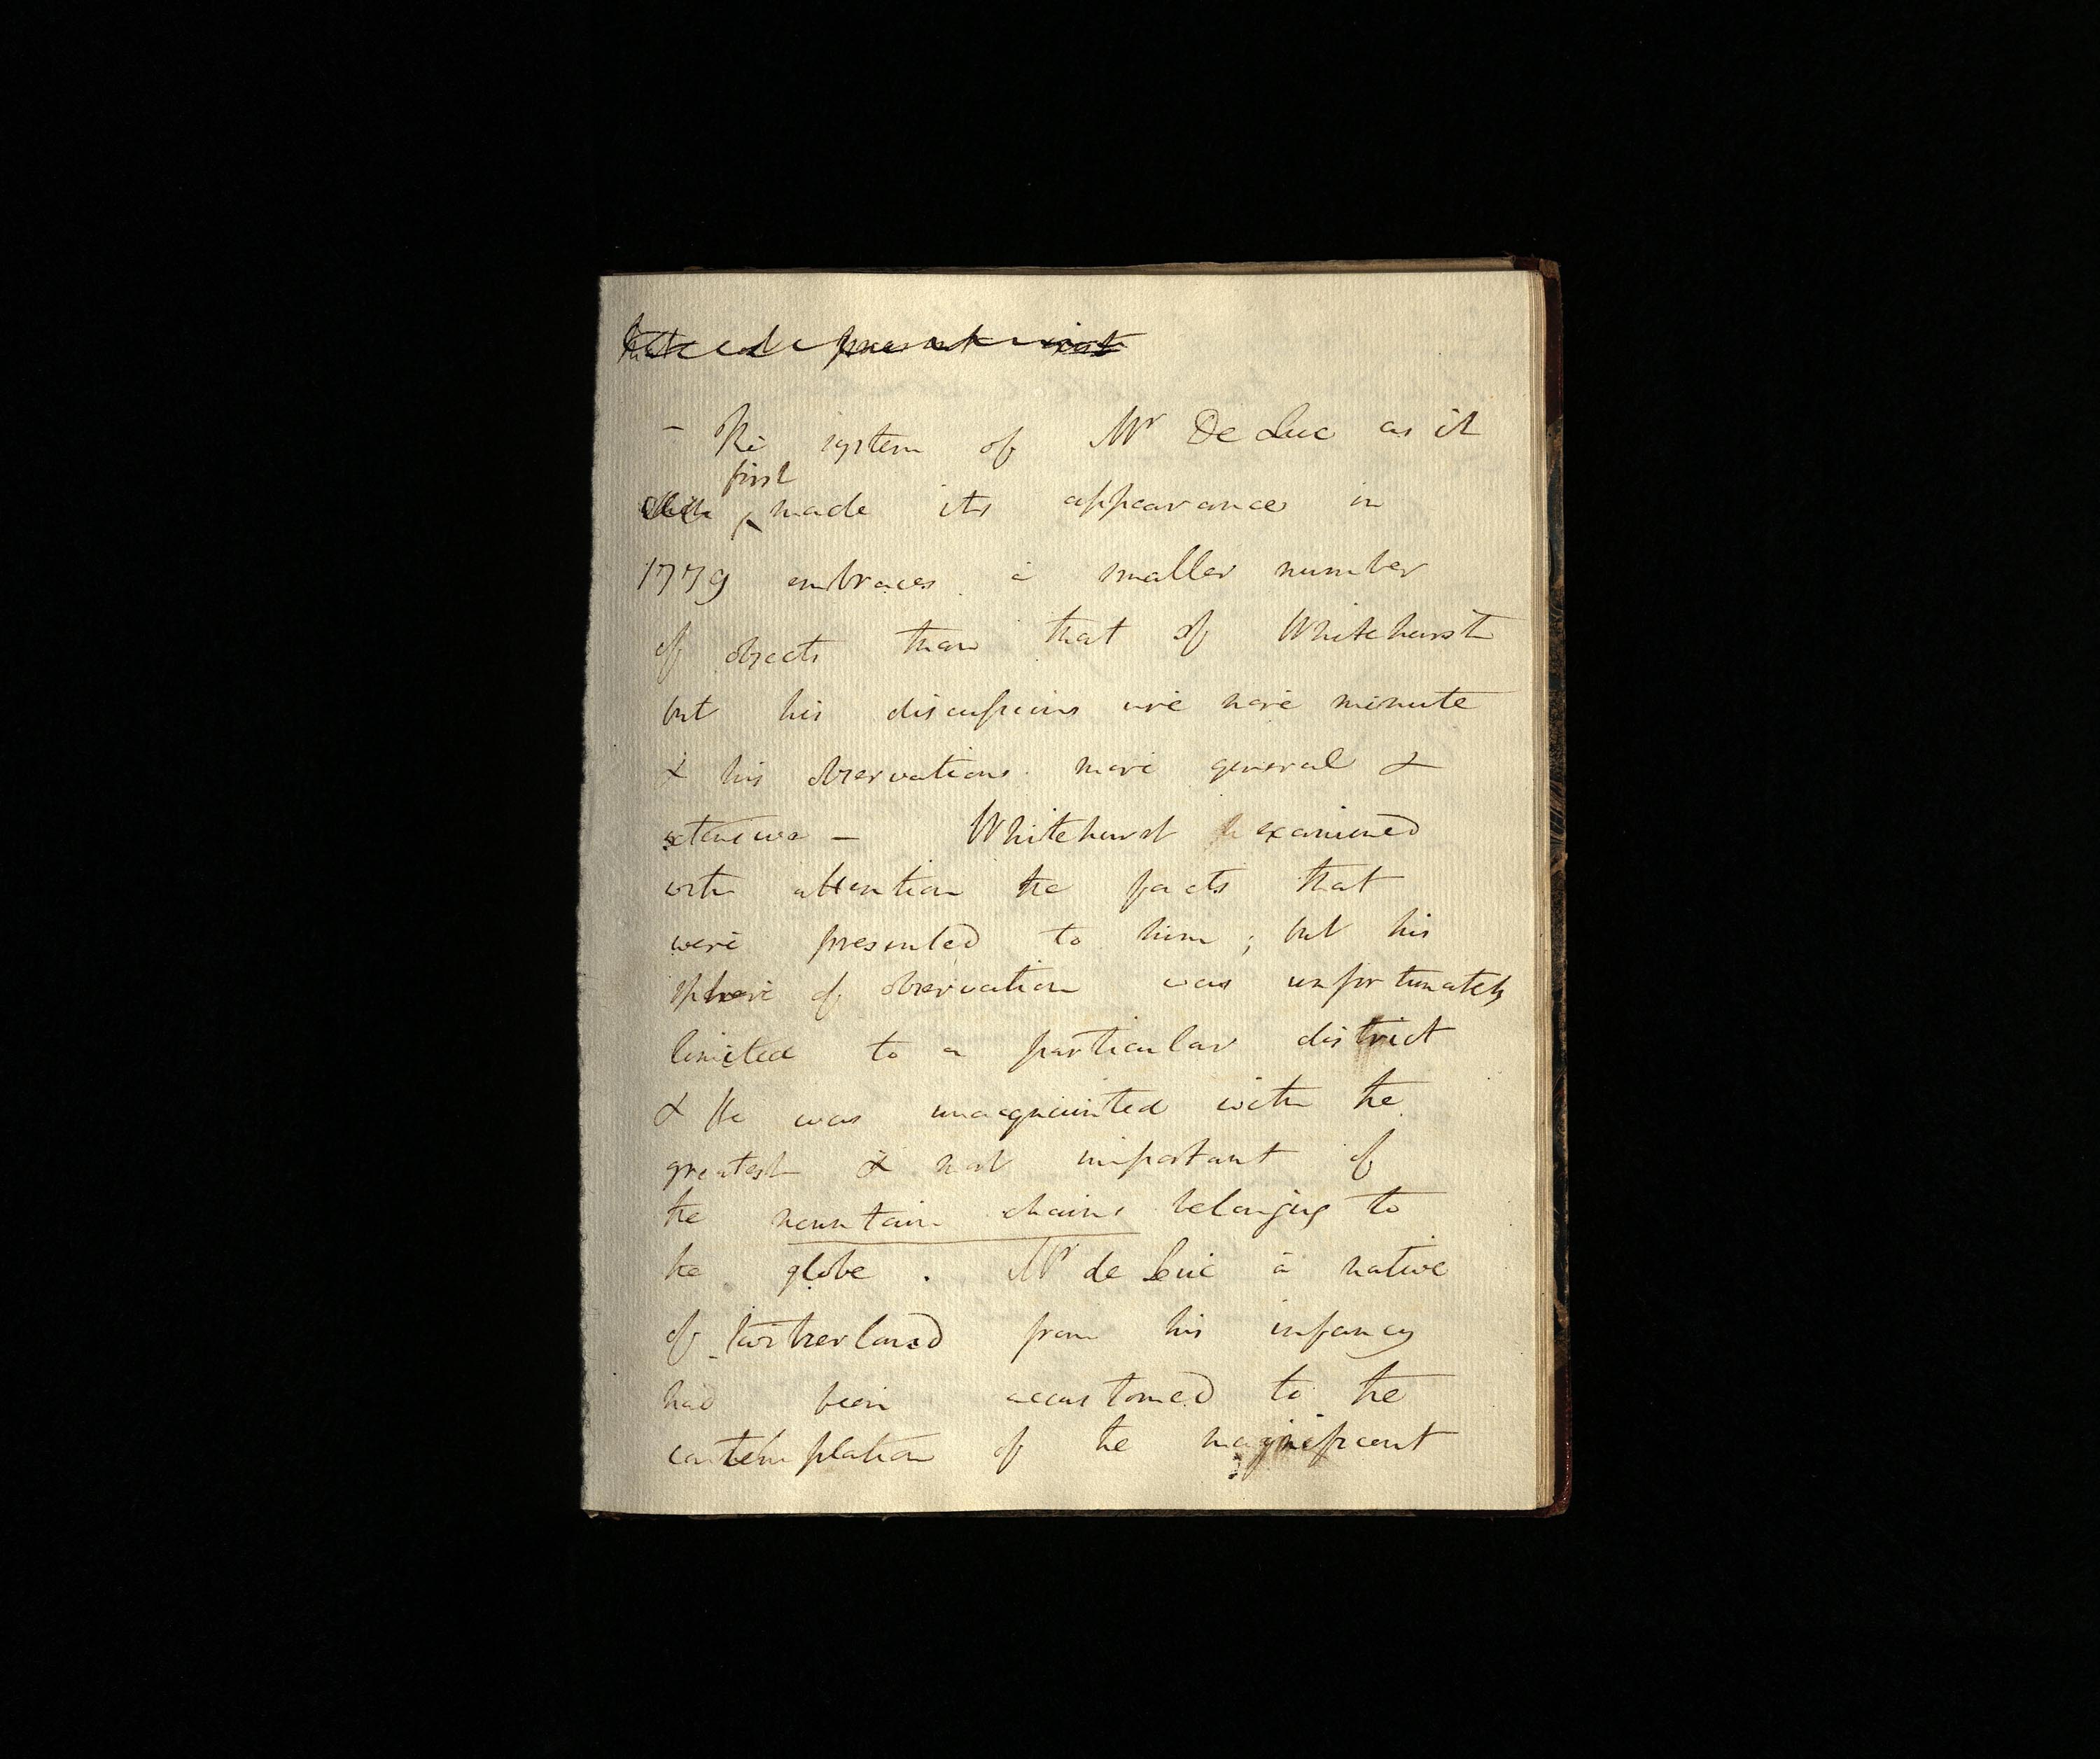 – The system of Mr De Luc as it
first
made its appearance in
1779 embraces a smaller number
of objects than that of Whitehurst
but his discussions are more minute
& his observations more general &
extensive – Whitehurst examined
with attention the facts that
were presented to him; but his
sphere of observation was unfortunately
limited to a particular district
& He was unacquainted with the
greatest & most important of
the mountain chains belonging to
the globe. Mr de Luc a native
of Switzerland from his infancy
had been accustomed to the
contemplation of the magnificent